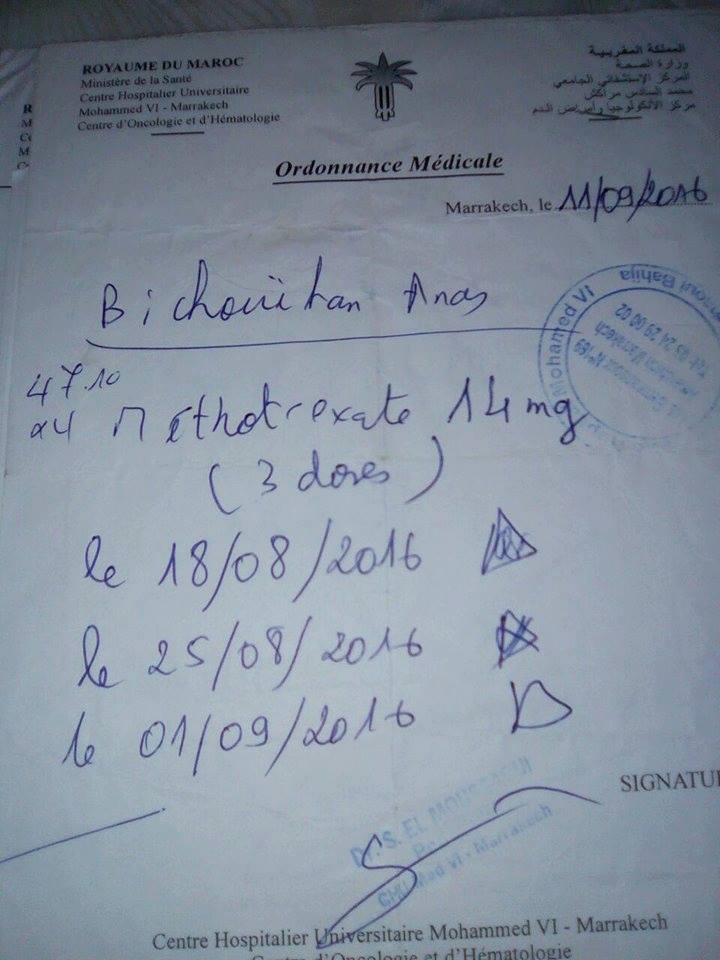 ROYAUME DU MAROC
Ministère de la Santé
Centre Hospitalier Universitaire
Mohammed VI - Marrakech
Centre d'Oncologie et d'Hématologie
المملكة المغربية
وزارة الصحة
المركز الإستشفائي الجامعي
محمد السادس مراكش
مركز الأنكولوجيا وأمراض الدم
Ordonnance Médicale
Marrakech, le 11/09/2016
Anas
47.10
x4 Méthotrexate 14 mg
(3 doses)
le 18/08/2016
le 25/08/2016
le 01/09/2016
Mohamed VI
Bahija
SIGNATU
Dr. S. EL
CHU Med VI - Marrakech
Centre Hospitalier Universitaire Mohammed VI - Marrakech
Centre d'Oncologie et d'Hématologie